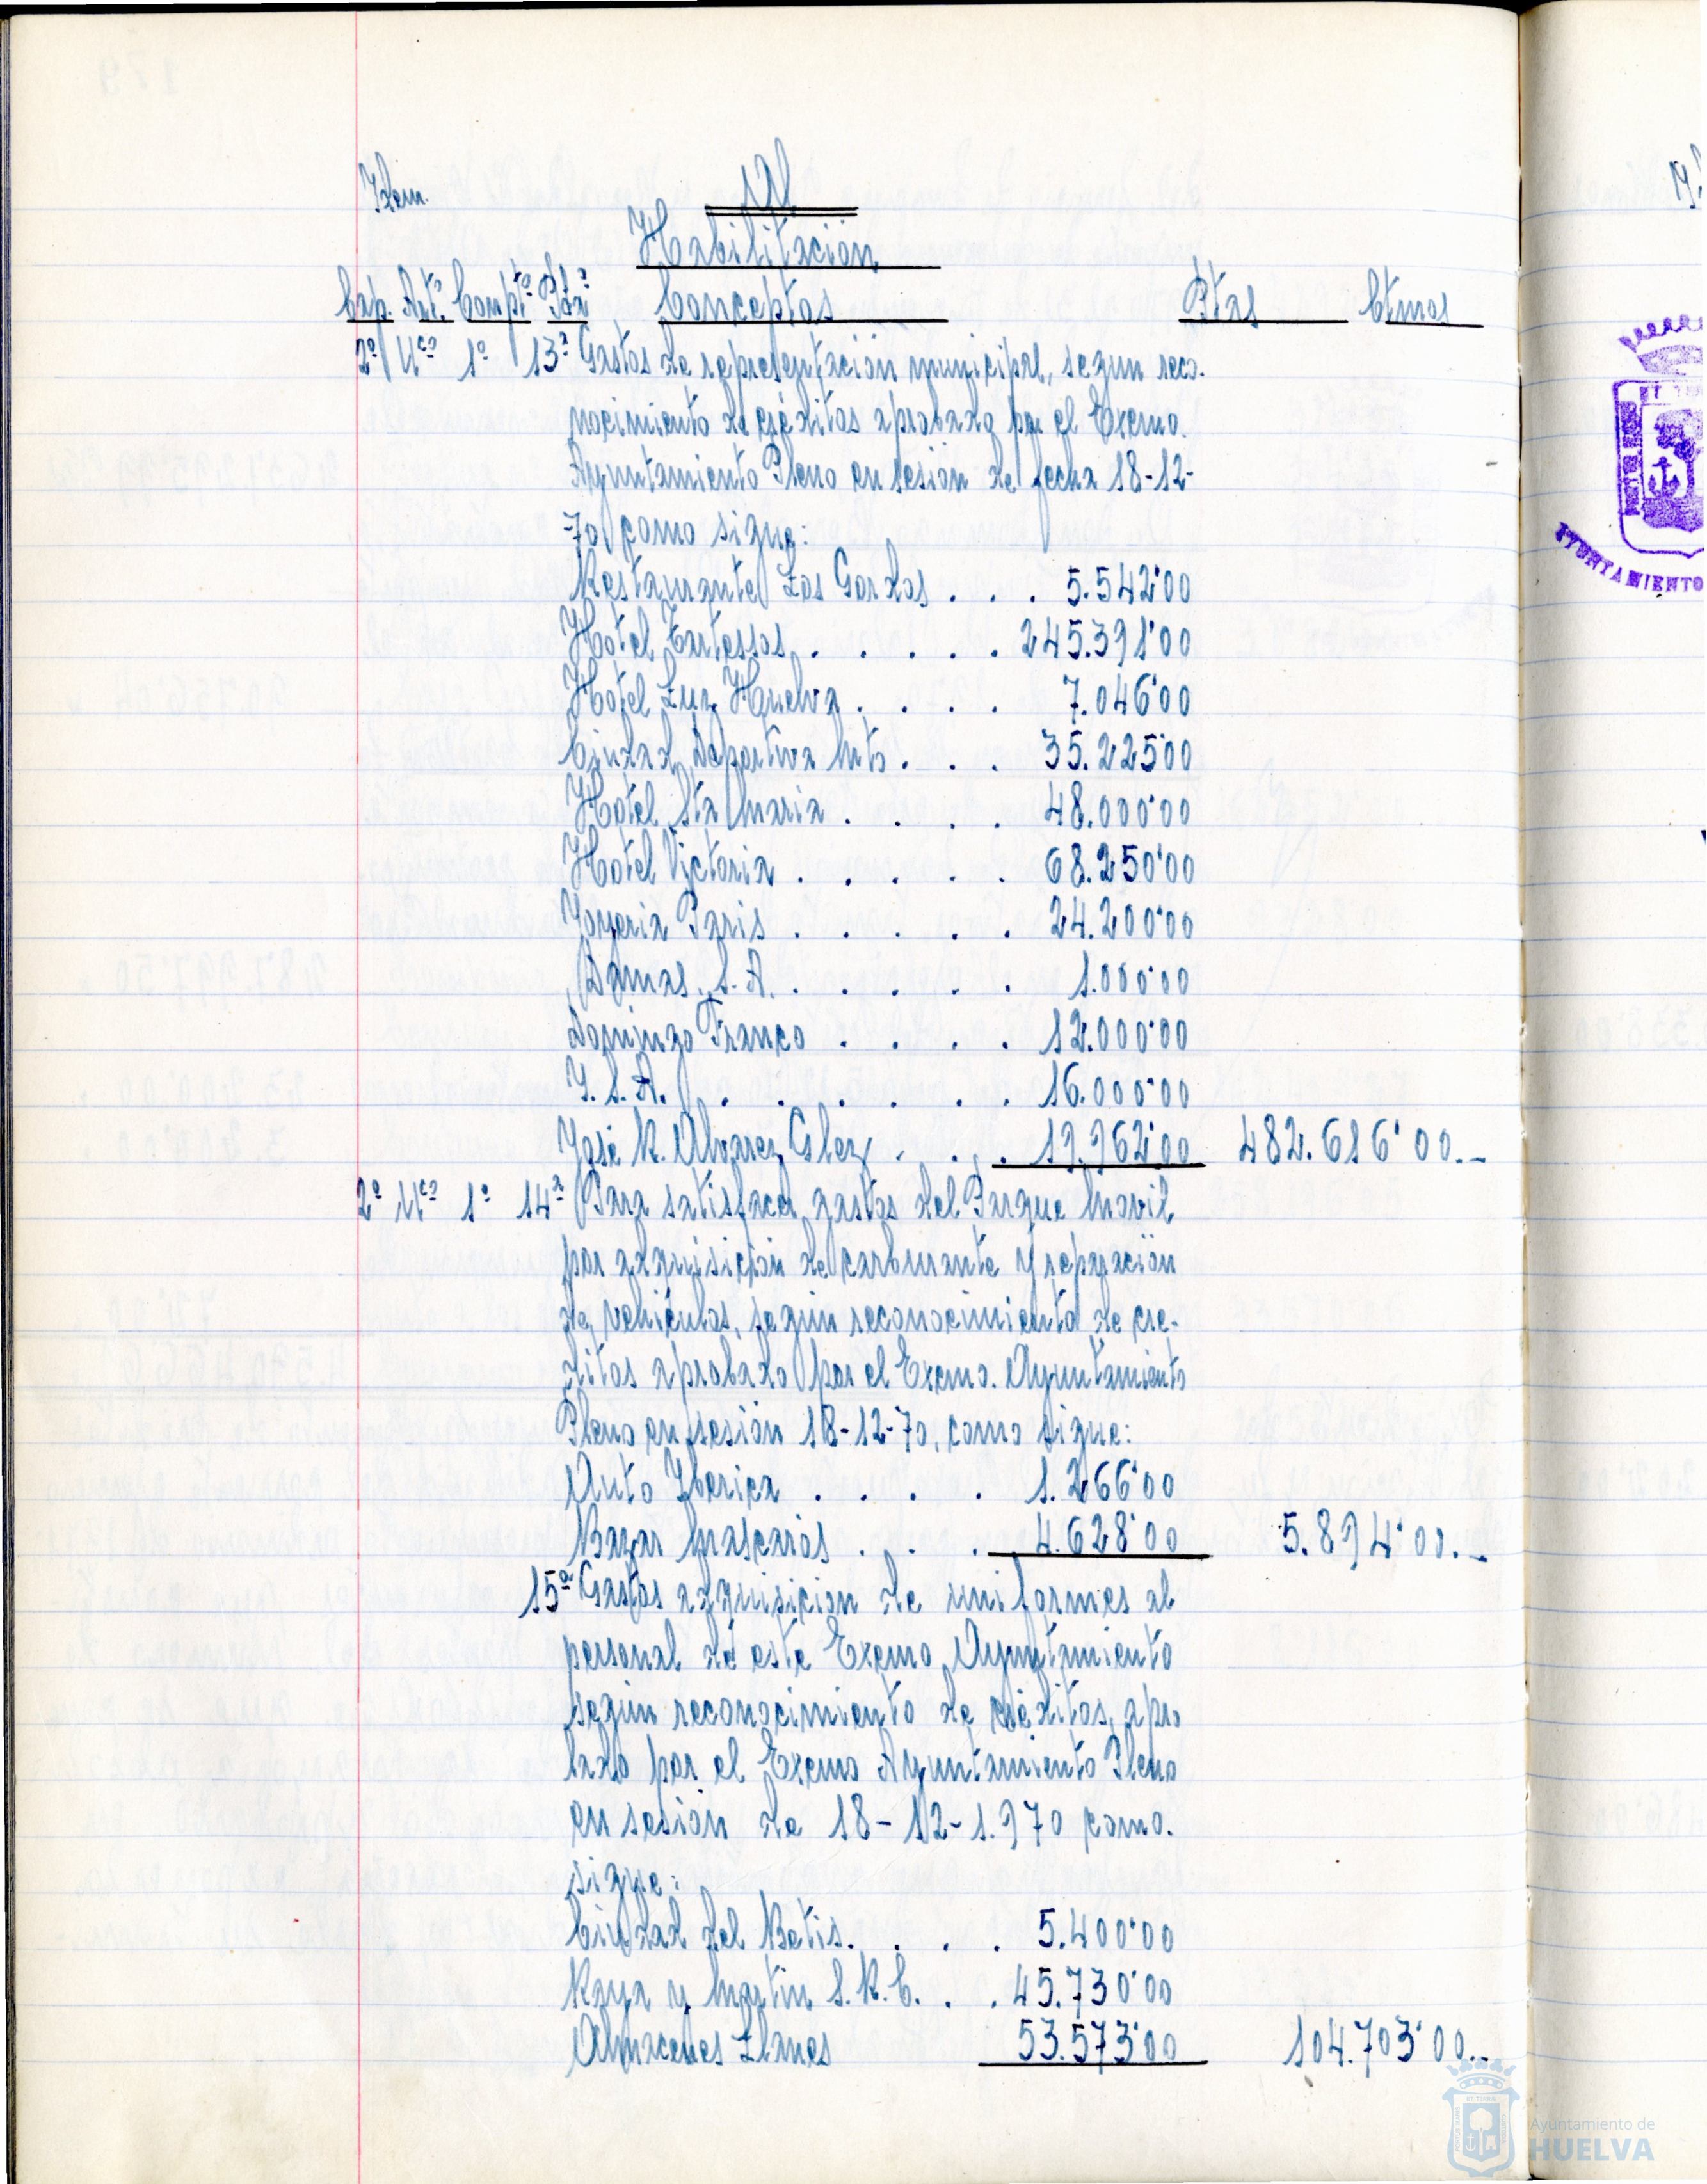 Idem.
Habilitación
Cap. Artº Comptº Pdaª Conceptos Ptas Ctmos
2º Uco 1º 13ª Gastos de representación municipal, segun reco-
nocimiento de créditos aprobado por el Excmo.
Ayuntamiento Pleno en sesion de fecha 18-12-
70, como sigue:
Restaurante Los Gordos . . . 5.542'00
Hotel Tartessos, . . . . . 245.391'00
Hotel Luz Huelva . . . . 7.046'00
Ciudad Deportiva Mto. . . . 35.225'00
Hotel Sta Maria . . . . 48.000'00
Hotel Victoria . . . . . 68.250'00
Joyeria Paris . . . . . 24.200'00
Damas, S.A. . . . . . 1.000'00
Domingo Franco . . . . 12.000'00
Y.S.A. . . . . . . 16.000'00
José R. Alvarez Glez . . . 19.962'00 482.616'00.-
2º Uco 1º 14ª Para satisfacer gastos del Parque Movil
por adquisición de carburante y reparación
de vehiculos, según reconocimiento de cre-
ditos aprobado por el Excmo. Ayuntamiento
Pleno en sesión 18-12-70, como sigue:
Auto Iberica . . . . 1.266'00
Bazar Mascarós . . . 4.628'00 5.894'00.-
15ª Gastos adquisicion de uniformes al
personal de este Excmo Ayuntamiento
según reconocimiento de créditos, apro
bado por el Excmo Ayuntamiento Pleno
en sesión de 18-12-1.970 como.
sigue:
Ciudad del Betis. . . . 5.400'00
Raya y Martin S.R.C. . . 45.730'00
Almacenes Llanes 53.573'00 104.703'00.-
AYUNTAMIENTO
Ayuntamiento de
HUELVA